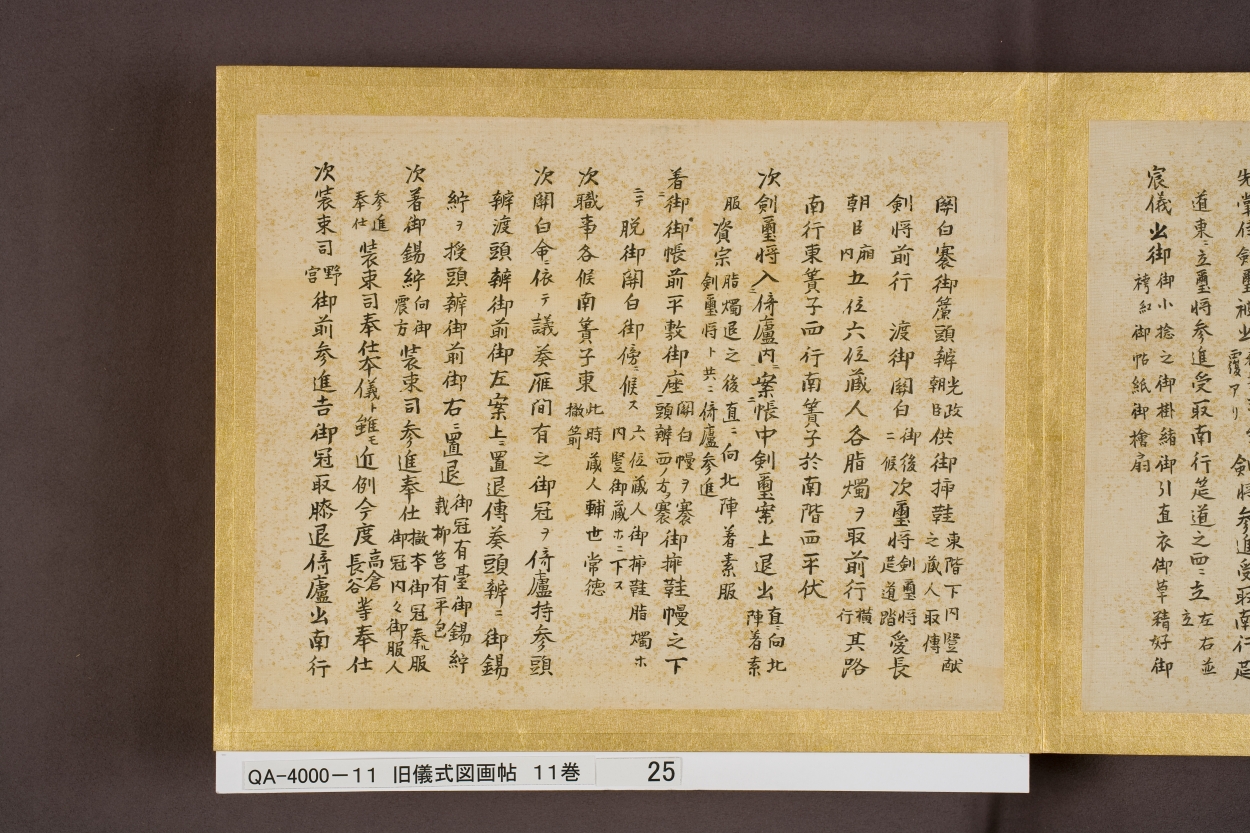 宸儀出御御小捻之御掛緒御引直衣御草鞋好御
襪紅御帖紙御檜扇
道東ニ立璽将参進受取南行筵道之西ニ立左右並立
関白褰御簾頭辨光政朝臣供御挿鞋東階下内豎献之蔵人取傳
剣将前行 渡御関白御後ニ候次璽将剣璽将筵道踏愛長
朝臣廂内五位六位蔵人各脂燭ヲ取前行横行其路
南行東簀子西行南簀子於南階西平伏
次剣璽将入倚廬内案帳中剣璽案上退出直ニ向北陣着素
服資宗脂燭退之後直ニ向北陣着素服剣璽将ト共ニ倚廬参進
着御御帳前平敷御座関白幔ヲ褰頭辨西ノ方褰御挿鞋幔之下
ニテ脱御関白御傍ニ候ス六位蔵人御挿鞋脂燭ホ内豎御蔵ホニ下ス
次職事各候南簀子東此時蔵人輔世常徳撤菷
次関白命ニ依テ議奏雁間有之御冠ヲ倚廬持参頭
辨渡頭辨御前御左案上ニ置退傳奏頭辨ニ御錫
紵ヲ授頭辨御前御右ニ置退御冠有臺御錫紵載柳筥有平包
次着御錫紵向御震方装束司参進奉仕撤本御冠奉服御冠内々御服人
参進奉仕装束司奉仕本儀ト雖モ近例今度高倉長谷等奉仕
次装束司野宮御前参進告御冠取膝退倚廬出南行
QA-4000-11 旧儀式図画帖 11巻 25